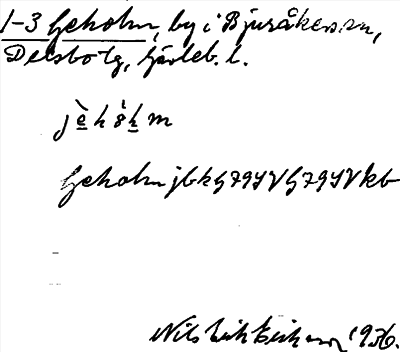 1-3 Geholm, by i Bjuråkers sn,
Delsbo tg, Gävleb. l.
jèhò̱lm
Geholm jbkG79YVG79YVkb
Nils Erik Eriksson 1936.